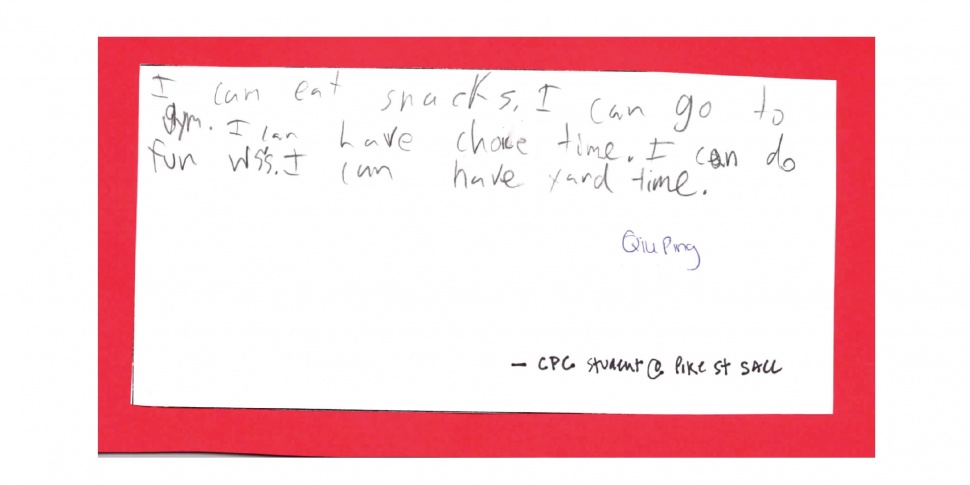 I can eat snacks. I can go to
gym. I can have choice time. I can do
fun WS's. I can have yard time.
Qiu Ping
— CPC student @ Pike St SACC